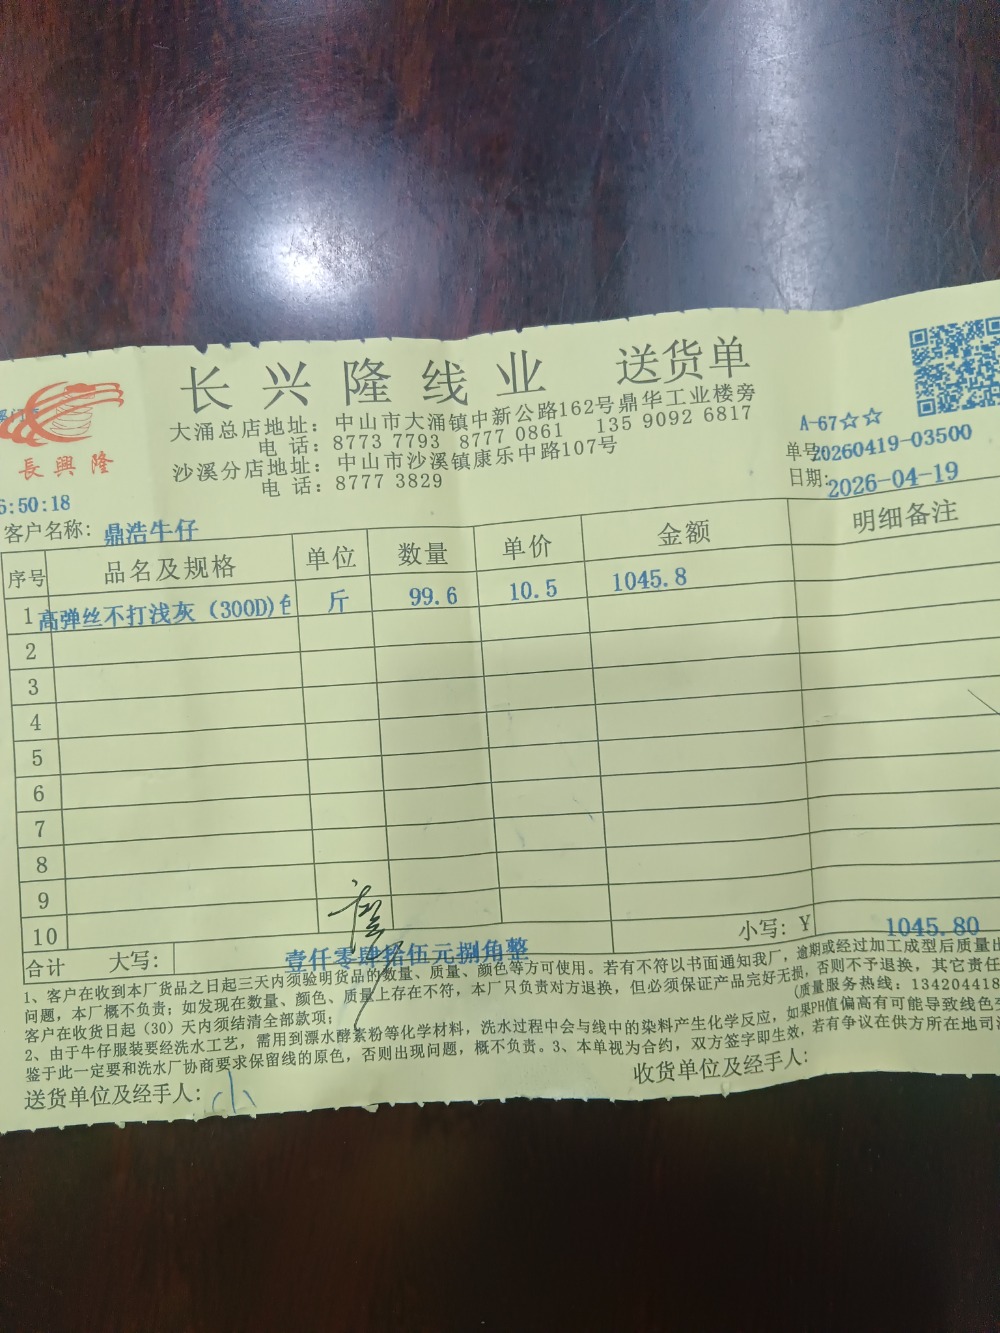 长兴隆线业 送货单
長興隆
大涌总店地址：中山市大涌镇中新公路162号鼎华工业楼旁
电 话：8773 7793 8777 0861 135 9092 6817
沙溪分店地址：中山市沙溪镇康乐中路107号
电 话：8777 3829
A-67☆☆
单号20260419-03500
日期:2026-04-19
6:50:18
客户名称: 鼎浩牛仔
序号 品名及规格 单位 数量 单价 金额 明细备注
1 高弹丝不打浅灰（300D) 斤 99.6 10.5 1045.8
2
3
4
5
6
7
8
9
10
合计 大写: 壹仟零肆拾伍元捌角整 小写: Y 1045.80
1、客户在收到本厂货品之日起三天内须验明货品的数量、质量、颜色等方可使用。若有不符以书面通知我厂，逾期或经过加工成型后质量出
问题，本厂概不负责；如发现在数量、颜色、质量上存在不符，本厂只负责对方退换，但必须保证产品完好无损，否则不予退换，其它责任
客户在收货日起（30）天内须结清全部款项； (质量服务热线：134204418
2、由于牛仔服装要经洗水工艺，需用到漂水酵素粉等化学材料，洗水过程中会与线中的染料产生化学反应，如果PH值偏高有可能导致线色变
鉴于此一定要和洗水厂协商要求保留线的原色，否则出现问题，概不负责。3、本单视为合约，双方签字即生效，若有争议在供方所在地司法
送货单位及经手人: 收货单位及经手人: